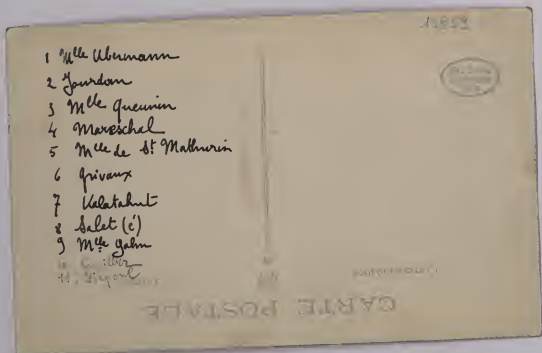 1 Mlle Ubermann
2 Jourdan
3 Mlle Queunin
4 Mareschal
5 Mlle de St Mathurin
6 Grivaux
7 Kelatahut
8 Salet (é)
9 Mlle Gahn
10
11.
CARTE POSTALE
Correspondance